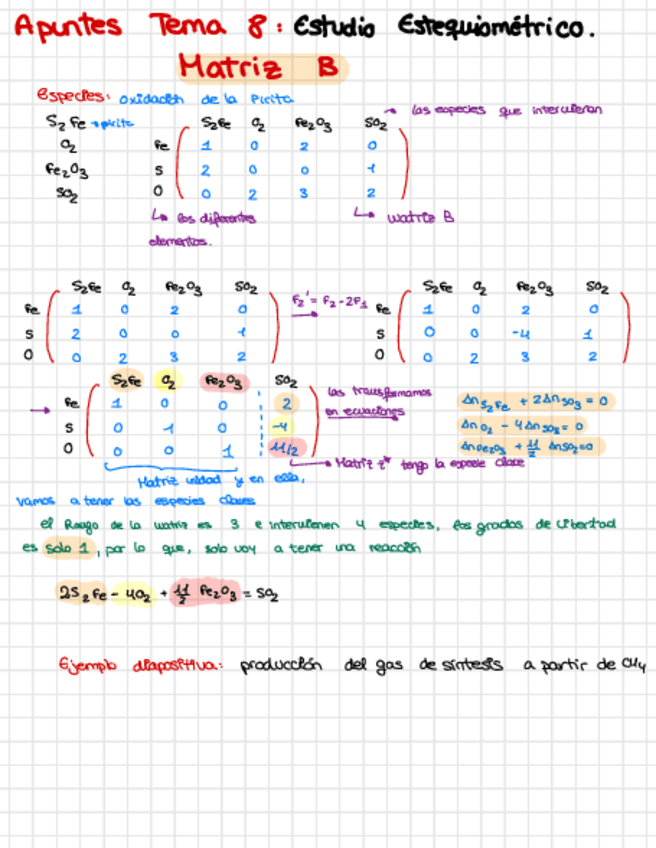 Apuntes Tema 8: Estudio Estequiométrico.
Matriz B
Especies: oxidación de la Pirita
S₂Fe → pirita
O₂
Fe₂O₃
SO₂
S₂Fe O₂ Fe₂O₃ SO₂
→ las especies que intervienen
Fe 1 0 2 0
S 2 0 0 1
O 0 2 3 2
↳ los diferentes elementos.
↳ matriz B
S₂Fe O₂ Fe₂O₃ SO₂
Fe 1 0 2 0
S 2 0 0 1
O 0 2 3 2
F₂' = F₂ - 2F₁
S₂Fe O₂ Fe₂O₃ SO₂
Fe 1 0 2 0
S 0 0 -4 1
O 0 2 3 2
S₂Fe O₂ Fe₂O₃ SO₂
→ Fe 1 0 0 2
S 0 1 0 -4
O 0 0 1 11/2
las transformamos
en ecuaciones
Δn S₂Fe + 2Δn SO₃ = 0
Δn O₂ - 4Δn SO₃ = 0
Δn Fe₂O₃ + 11/2 Δn SO₂ = 0
→ Matriz z* tengo la especie clave
Matriz unidad y en ella,
vamos a tener las especies claves
el Rango de la matriz es 3 e intervienen 4 especies, los grados de libertad
es solo 1, por lo que, solo voy a tener una reacción
2S₂Fe - 4O₂ + 11/2 Fe₂O₃ = SO₂
Ejemplo diapositiva: producción del gas de síntesis a partir de CH₄